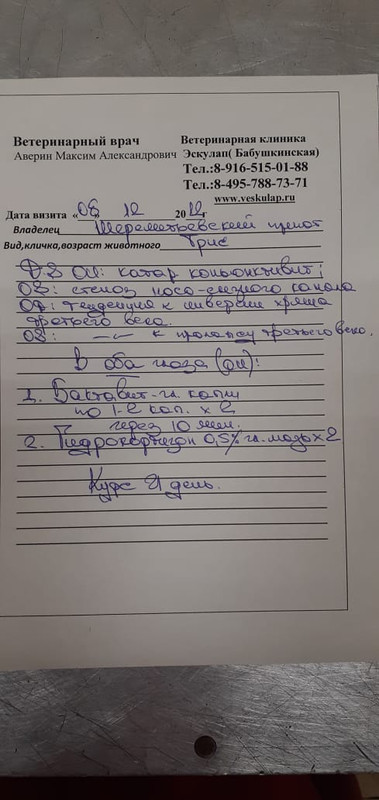 Ветеринарный врач
Аверин Максим Александрович
Ветеринарная клиника
Эскулап( Бабушкинская)
Тел.:8-916-515-01-88
Тел.:8-495-788-73-71
www.veskulap.ru
Дата визита «06 12 20 г
Владелец Шереметьевский приют
Вид,кличка,возраст животного Грис
DS OU: катар. конъюнктивит;
OS: стеноз носо-слезного канала
OD: тенденция к инверсии хряща
третьего века.
OS: —"— к пролапсу третьего века.
В оба глаза (OU):
1. Бактавит-гл. капли
по 1-2 кап. х 2
через 10 мин.
2. Гидрокортизон 0,5% гл. мазь х 2
Курс 21 день.